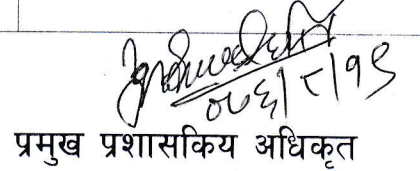 ०७६।८।१९
प्रमुख प्रशासकिय अधिकृत